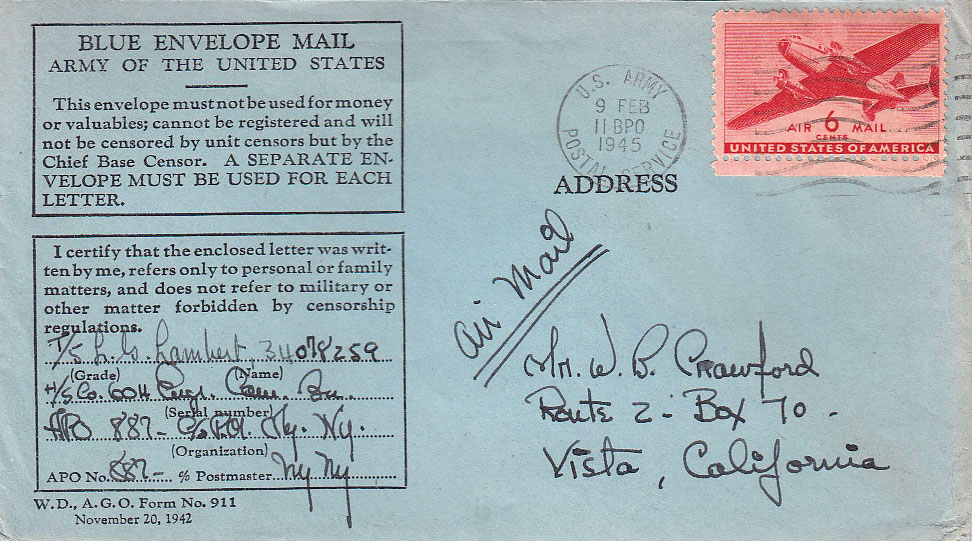 BLUE ENVELOPE MAIL
ARMY OF THE UNITED STATES
This envelope must not be used for money
or valuables; cannot be registered and will
not be censored by unit censors but by the
Chief Base Censor. A SEPARATE EN-
VELOPE MUST BE USED FOR EACH
LETTER.
I certify that the enclosed letter was writ-
ten by me, refers only to personal or family
matters, and does not refer to military or
other matter forbidden by censorship
regulations.
T/5 L. G. Lambert 34078259
(Grade) (Name)
H/S Co. 604 Engr. Cam. Bn.
(Serial number)
APO 887- C/o P.M. Ny. Ny.
(Organization)
APO No. 887- % Postmaster Ny Ny
W. D., A. G. O. Form No. 911
November 20, 1942
U.S. ARMY
9 FEB
11 BPO
1945
POSTAL SERVICE
AIR 6 MAIL
CENTS
UNITED STATES OF AMERICA
ADDRESS
Air Mail
Mr. W. B. Crawford
Route 2- Box 70 -
Vista, California